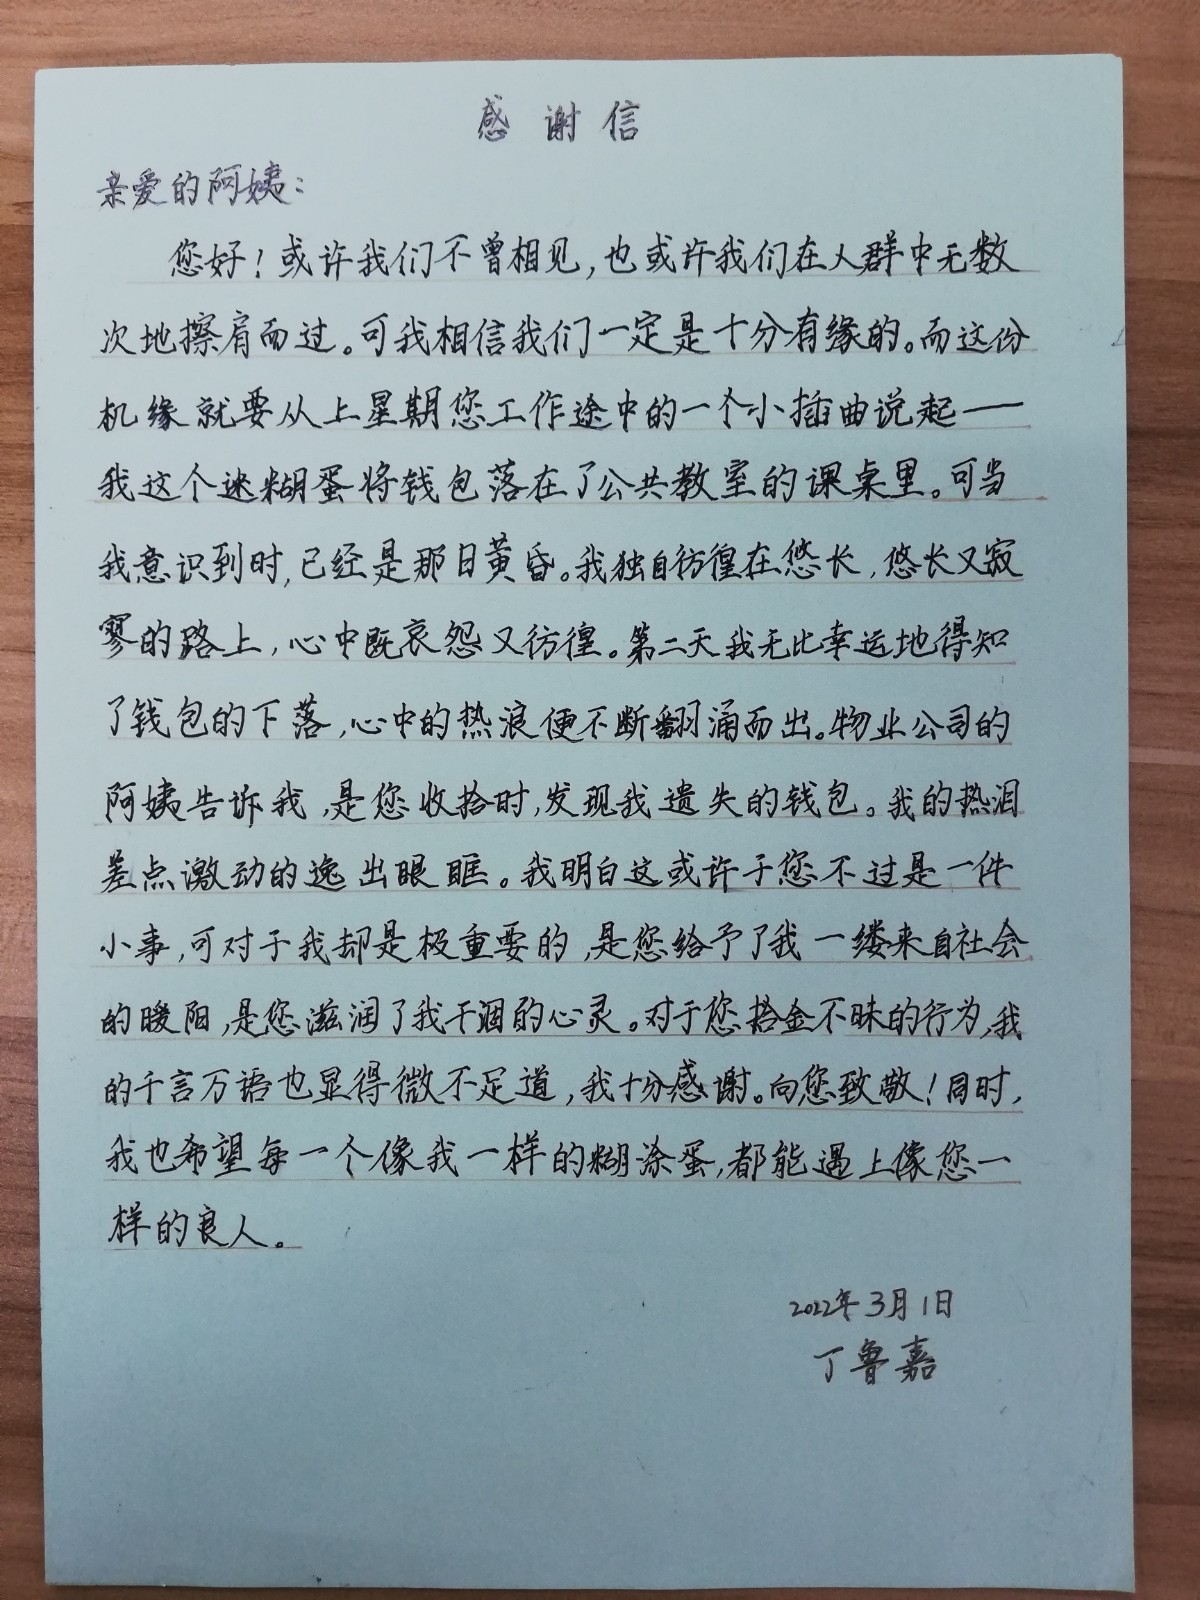 感谢信
亲爱的阿姨：
您好！或许我们不曾相见，也或许我们在人群中无数
次地擦肩而过。可我相信我们一定是十分有缘的。而这份
机缘就要从上星期您工作途中的一个小插曲说起——
我这个迷糊蛋将钱包落在了公共教室的课桌里。可当
我意识到时，已经是那日黄昏。我独自彷徨在悠长，悠长又寂
寥的路上，心中既哀怨又彷徨。第二天我无比幸运地得知
了钱包的下落，心中的热浪便不断翻涌而出。物业公司的
阿姨告诉我，是您收拾时，发现我遗失的钱包。我的热泪
差点激动的逸出眼眶。我明白这或许于您不过是一件
小事，可对于我却是极重要的，是您给予了我一缕来自社会
的暖阳，是您滋润了我干涸的心灵。对于您拾金不昧的行为，我
的千言万语也显得微不足道，我十分感谢。向您致敬！同时，
我也希望每一个像我一样的糊涂蛋，都能遇上像您一
样的良人。
2022年3月1日
丁鲁嘉